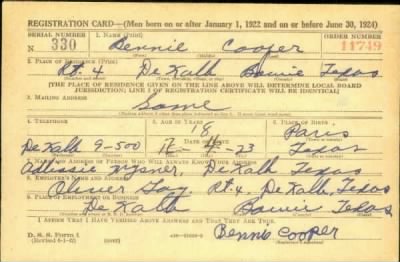 REGISTRATION CARD—(Men born on or after January 1, 1922 and on or before June 30, 1924)
SERIAL NUMBER 1. NAME (Print) ORDER NUMBER
N 330 Bennie Cooper 11749
2. PLACE OF RESIDENCE (Print)
Rt. 4 De Kalb Bowie Texas
[THE PLACE OF RESIDENCE GIVEN ON THE LINE ABOVE WILL DETERMINE LOCAL BOARD
JURISDICTION; LINE 2 OF REGISTRATION CERTIFICATE WILL BE IDENTICAL]
3. MAILING ADDRESS
Same
4. TELEPHONE 5. AGE IN YEARS 6. PLACE OF BIRTH
18 Paris
DATE OF BIRTH
De Kalb 9-500 23 Texas
7. NAME AND ADDRESS OF PERSON WHO WILL ALWAYS KNOW YOUR ADDRESS
De Kalb Texas
8. EMPLOYER'S NAME AND ADDRESS
Oliver Rt. 4. De Kalb, Texas
9. PLACE OF EMPLOYMENT OR BUSINESS
De Kalb Bowie Texas
I AFFIRM THAT I HAVE VERIFIED ABOVE ANSWERS AND THAT THEY ARE TRUE.
D. S. S. Form 1
Bennie Cooper